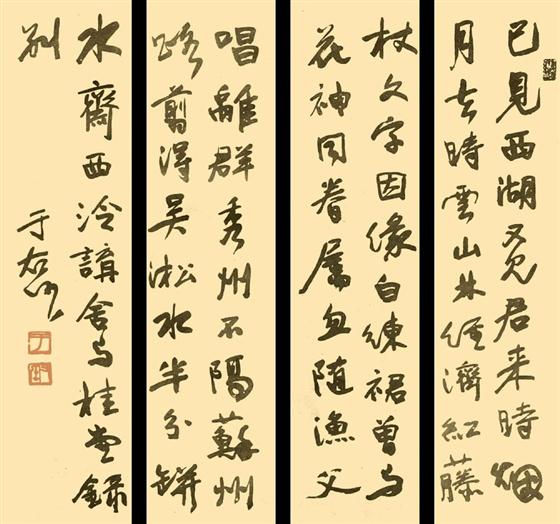 已見西湖又見君来時烟
月去時雲山林經濟紅藤
杖文字因緣白練裙曾与
花神同眷屬且随漁父
唱離群秀州不隔蘇州
路剪得吴淞水半分缾
水齋西泠舍与桂堂錄
别
于右任